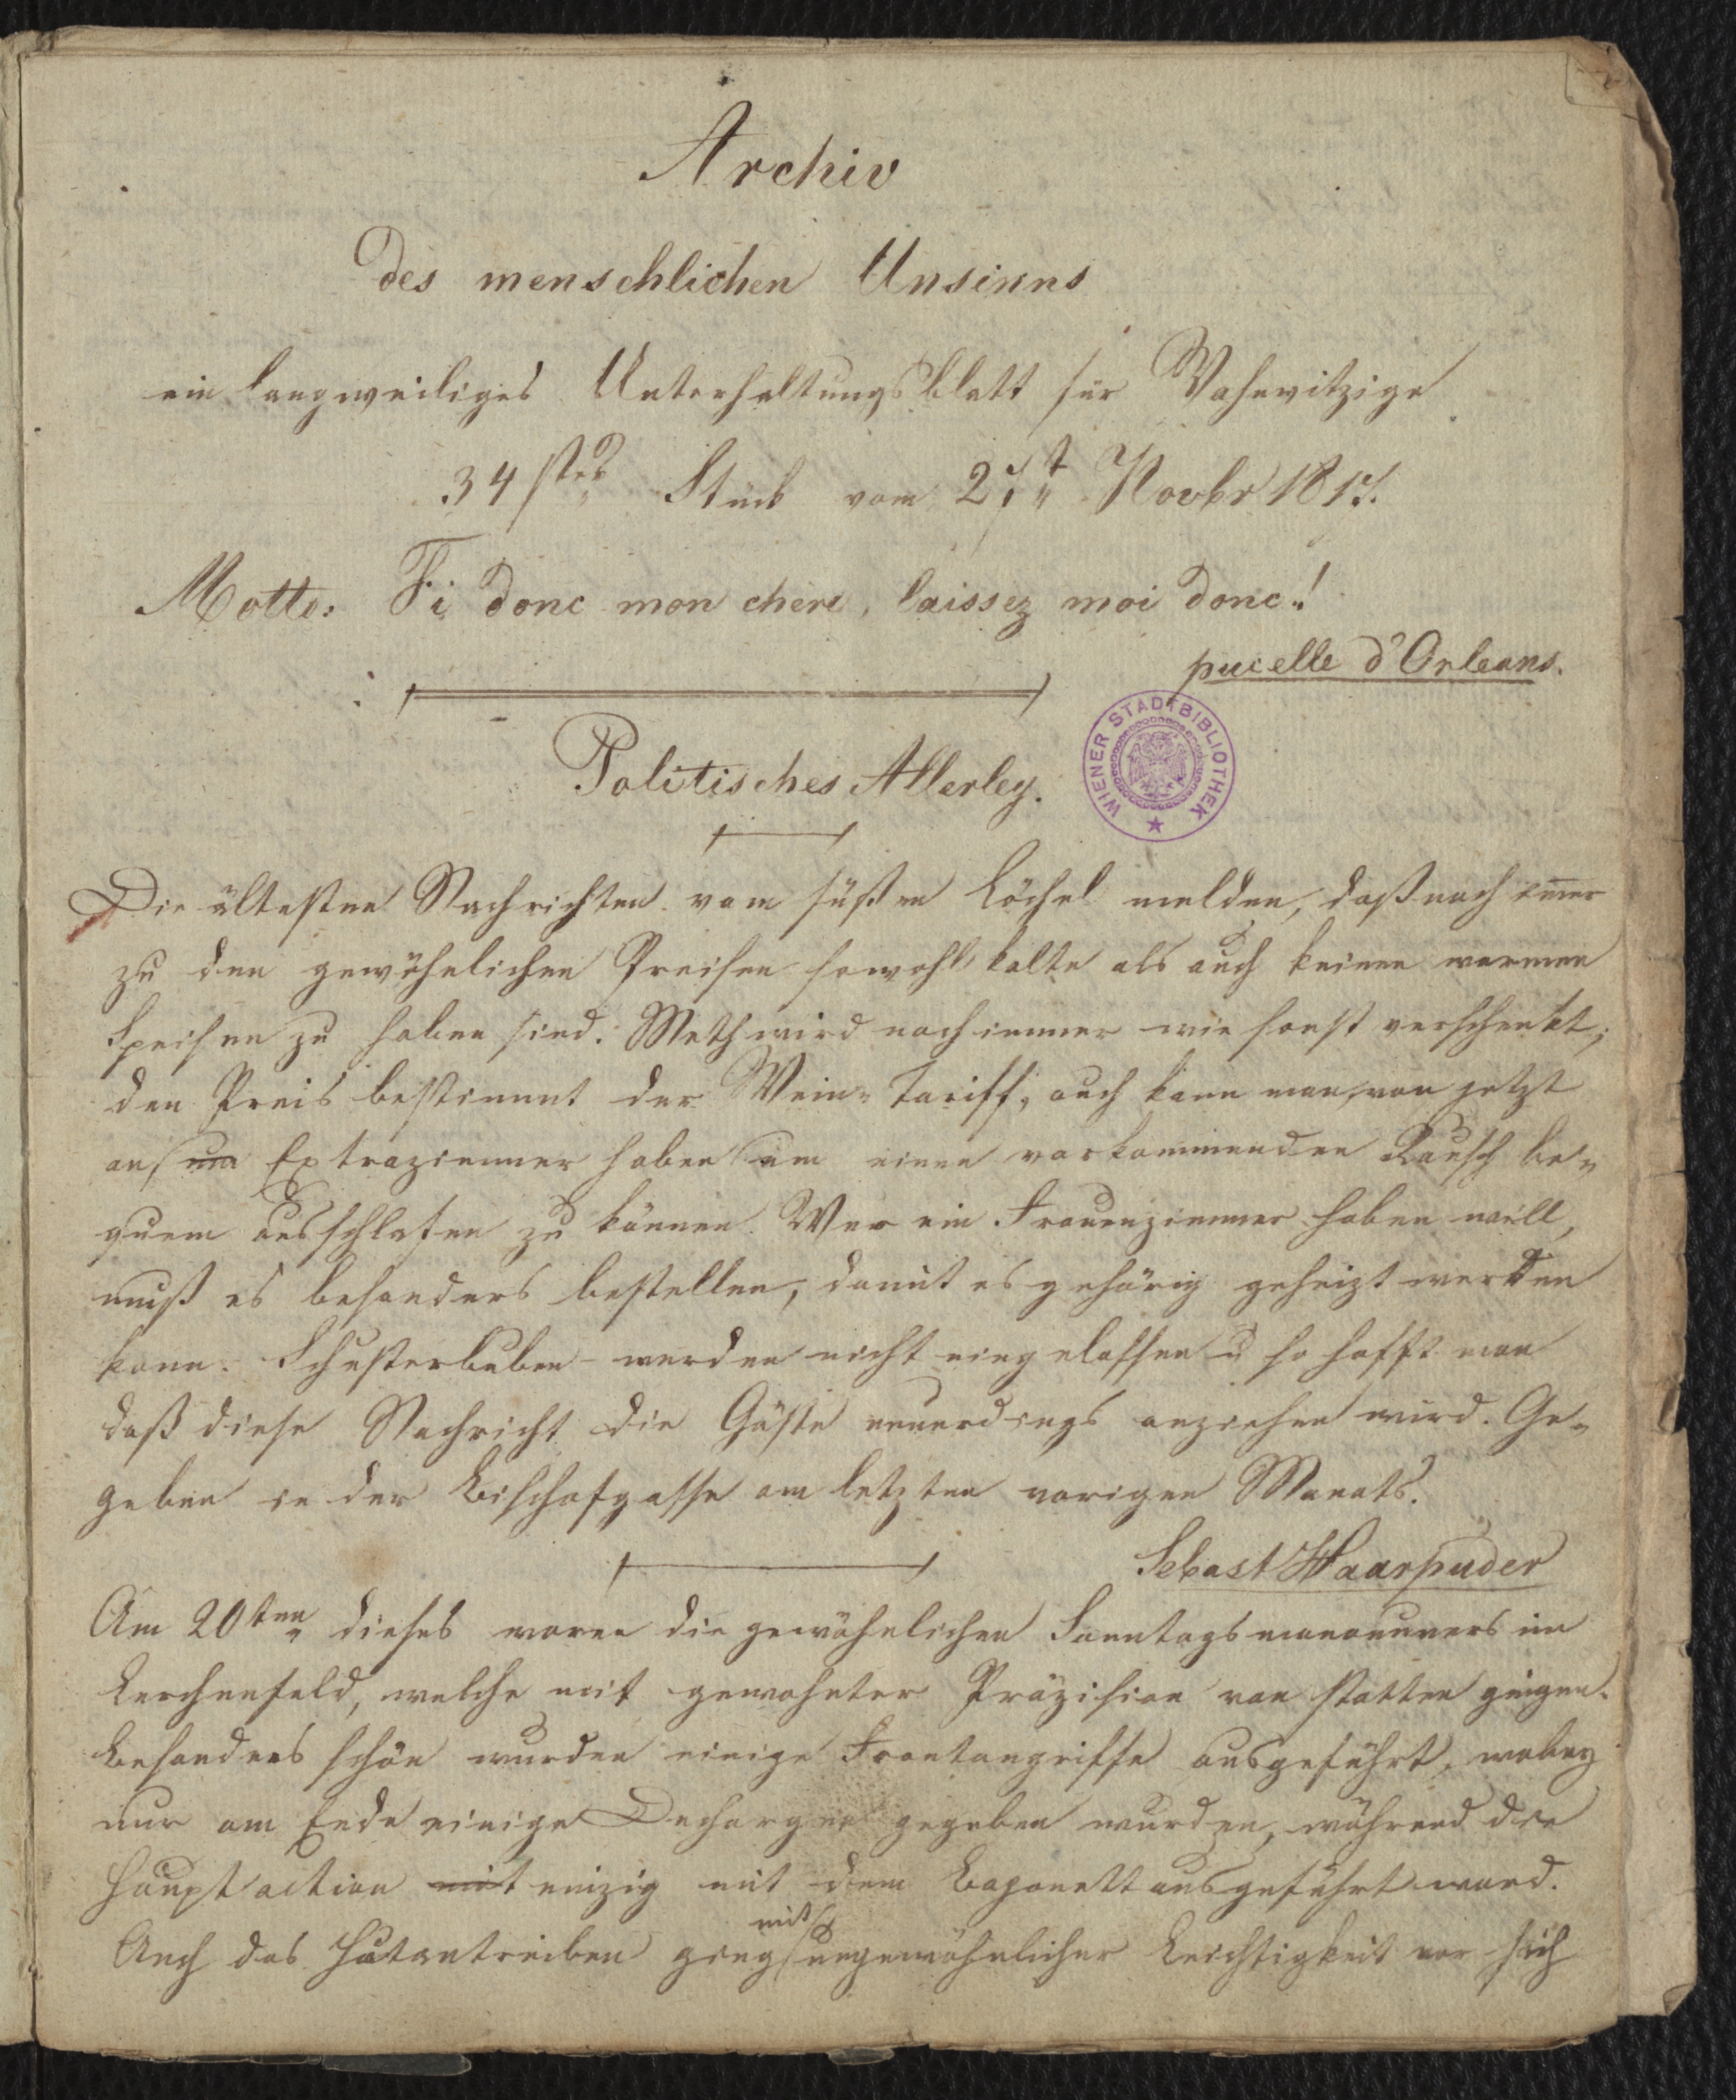 Archiv
des menschlichen Unsinns
ein langweiliges Unterhaltungsblatt für Wahnwitzige
34stes Stück vom 27t Novbr 1817.
Motto: Fi donc mon chere, laissez moi donc!
pucelle d'Orleans.
WIENER STADTBIBLIOTHEK
Politisches Allerley.
Die ältesten Nachrichten vom süßen Löchel melden, daß noch imer
zu den gewöhnlichen Preisen sowohl kalte als auch keinen warmen
Speisen zu haben sind. Meth wird noch immer wie sonst verschenkt;
den Preis bestimmt der Wein-Tariff, auch kann man von jetzt
an Extrazimmer haben um einen vorkommenden Rausch be-
quem ausschlafen zu können. Wer ein Frauenzimmer haben will,
muß es besonders bestellen, damit es gehörig geheizt werden
kann. Schusterbuben werden nicht eingelassen u so hofft man
daß diese Nachricht die Gäste neuerdings anziehen wird. Ge-
geben in der Bischofgasse am letzten vorigen Monats.
Sebast Haarpuder
Am 20ten dieses waren die gewöhnlichen Sonntagsmanouvers im
Lerchenfeld, welche mit gewohnter Präzision von statten gingen.
Besonders schön wurden einige Frontangriffe ausgeführt, wobey
nur am Ende einige Dechargen gegeben wurden, während die
Hauptaction mit einzig mit dem Bajonett ausgeführt ward.
Auch das Hutantreiben gieng mit ungewöhnlicher Leichtigkeit vor sich